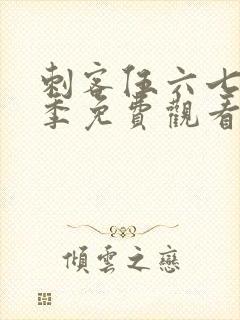 刺客伍六七
季免費觀看
傾雲之戀